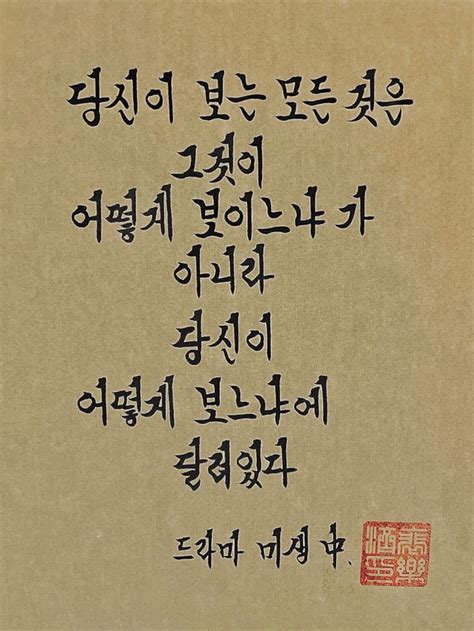 당신이 보는 모든 것은
그것이
어떻게 보이느냐 가
아니라
당신이
어떻게 보느냐에
달려있다
드라마 미생 中.